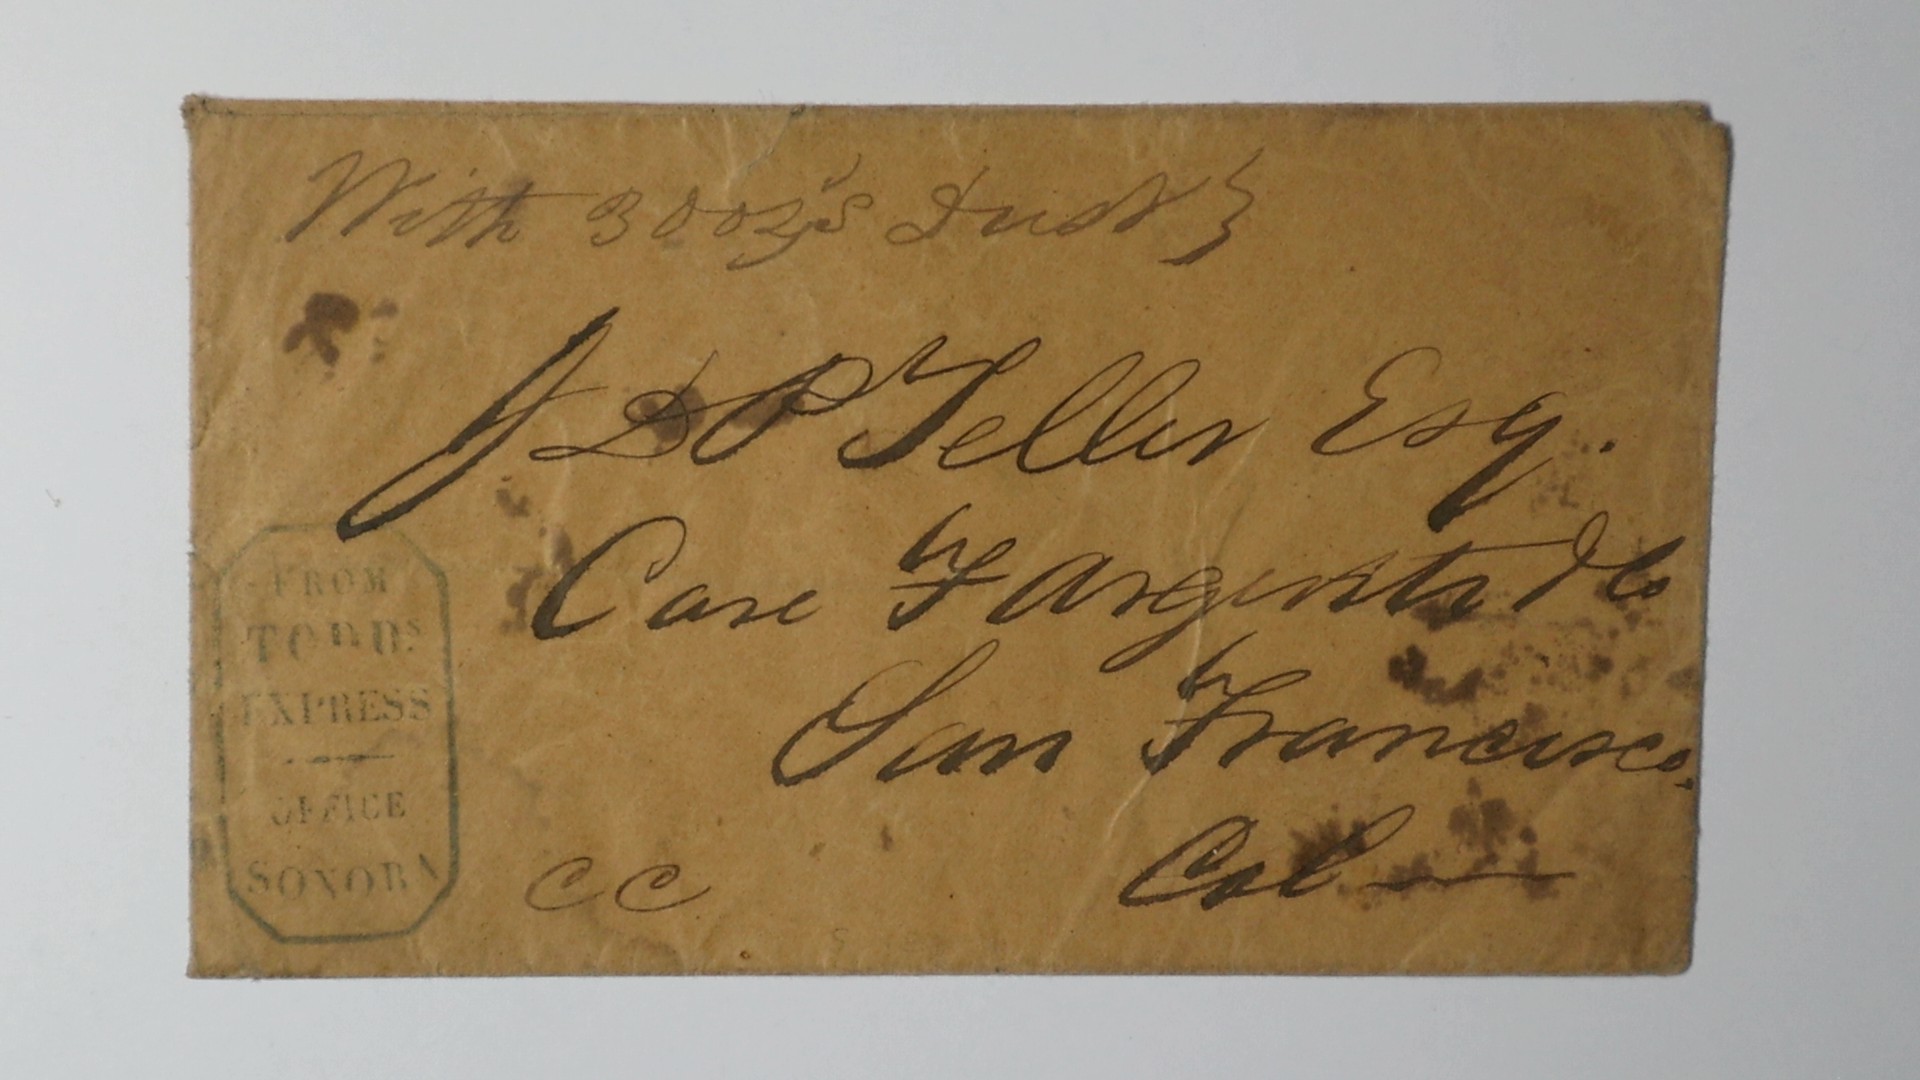 With 300oz's Dust
J D P Teller Esq.
Care Fargusta & Co
San Francisco.
Cal
CC
FROM
TODDS
EXPRESS
OFFICE
SONORA